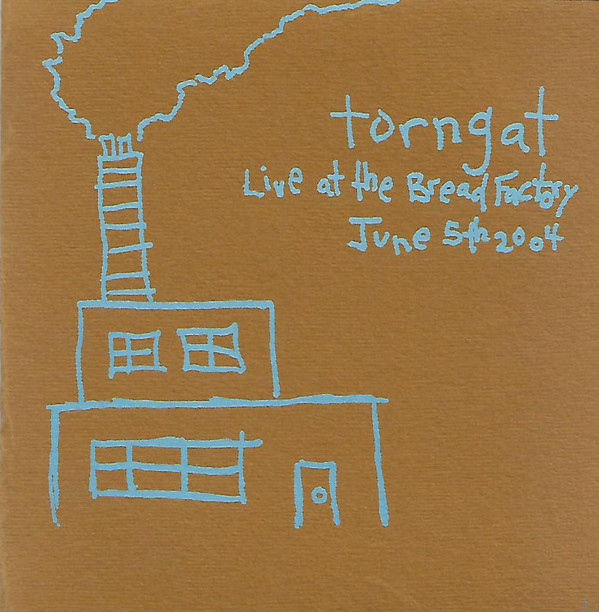 torngat
Live at the Bread Factory
June 5th 2004